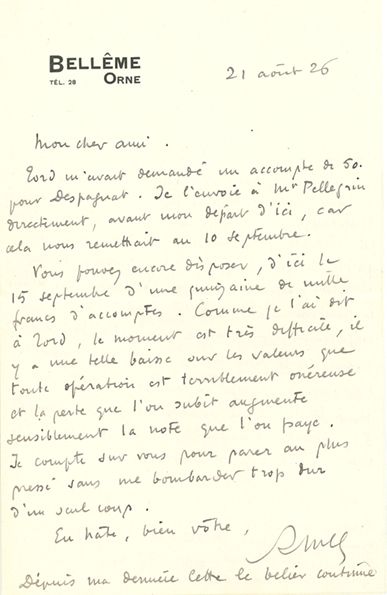 BELLÊME
TÉL. 28 ORNE
21 août 26
Mon cher ami.
Zord m'avait demandé un accompte de 50.
pour Despagnat. Je l'envoie à Mr Pellegrin
directement, avant mon départ d'ici, car
cela nous remettrait au 10 septembre.
Vous pouvez encore disposer, d'ici le
15 septembre d'une quinzaine de mille
francs d'accomptes. Comme je l'ai dit
à Zord, le moment est très difficile, il
y a une telle baisse sur les valeurs que
toute opération est terriblement onéreuse
et la perte que l'on subit augmente
sensiblement la note que l'on paye.
Je compte sur vous pour parer au plus
pressé sans me bombarder trop dur
d'un seul coup.
En hâte, bien vôtre,
Depuis ma dernière lettre le belier continue